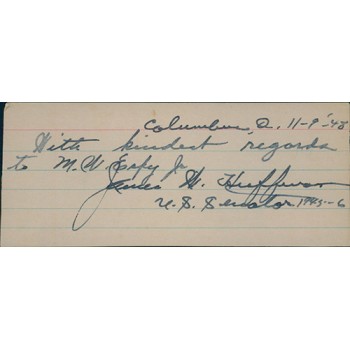 Columbus, O. 11-9-'48
With kindest regards
to M. W. Espy Jr
James W. Huffman
U.S. Senator 1945-6